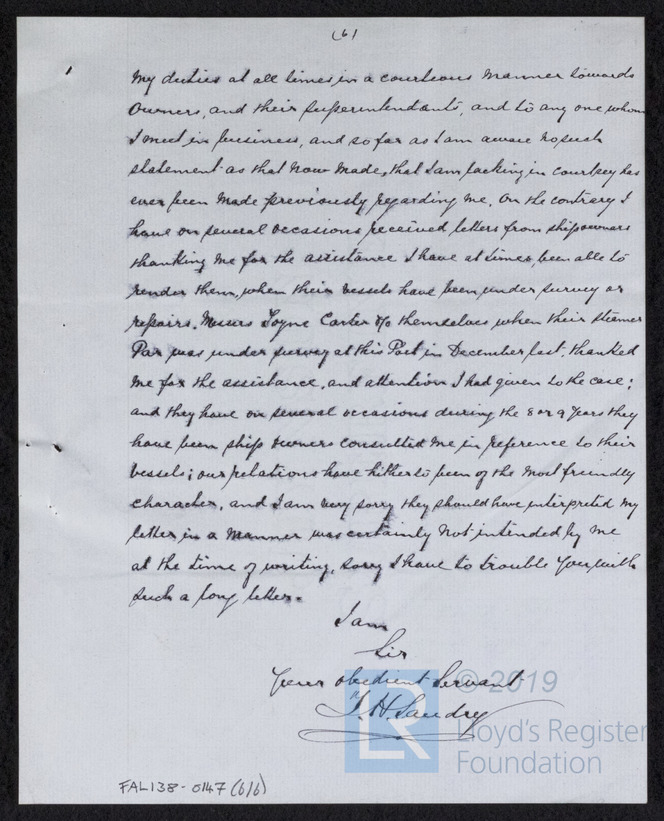 (6)
My duties at all times in a courteous manner towards
Owners, and their Superintendants, and to any one whom
I meet in business, and so far as I am aware no such
statement as that now made, that I am lacking in courtsey has
ever been made previously regarding me. On the contrary I
have on several occasions received letters from shipowners
thanking me for the assistance I have at times, been able to
render them, when their vessels have been under survey or
repairs. Messrs Toyne Carter &Co themselves when their steamer
Par was under survey at this Port in December last, thanked
me for the assistance, and attention I had given to the case;
and they have on several occasions during the 8 or 9 years they
have been ship owners consulted me in reference to their
vessels; our relations have hitherto been of the most friendly
character, and I am very sorry they should have interpreted my
letter in a manner was certainly not intended by me
at the time of writing, sorry I have to trouble you with
such a long letter.
I am
Sir
Yours obedient Servant
H. Sandry
FAL138-0147(6/6)
© 2019
LR
Lloyd's Register
Foundation